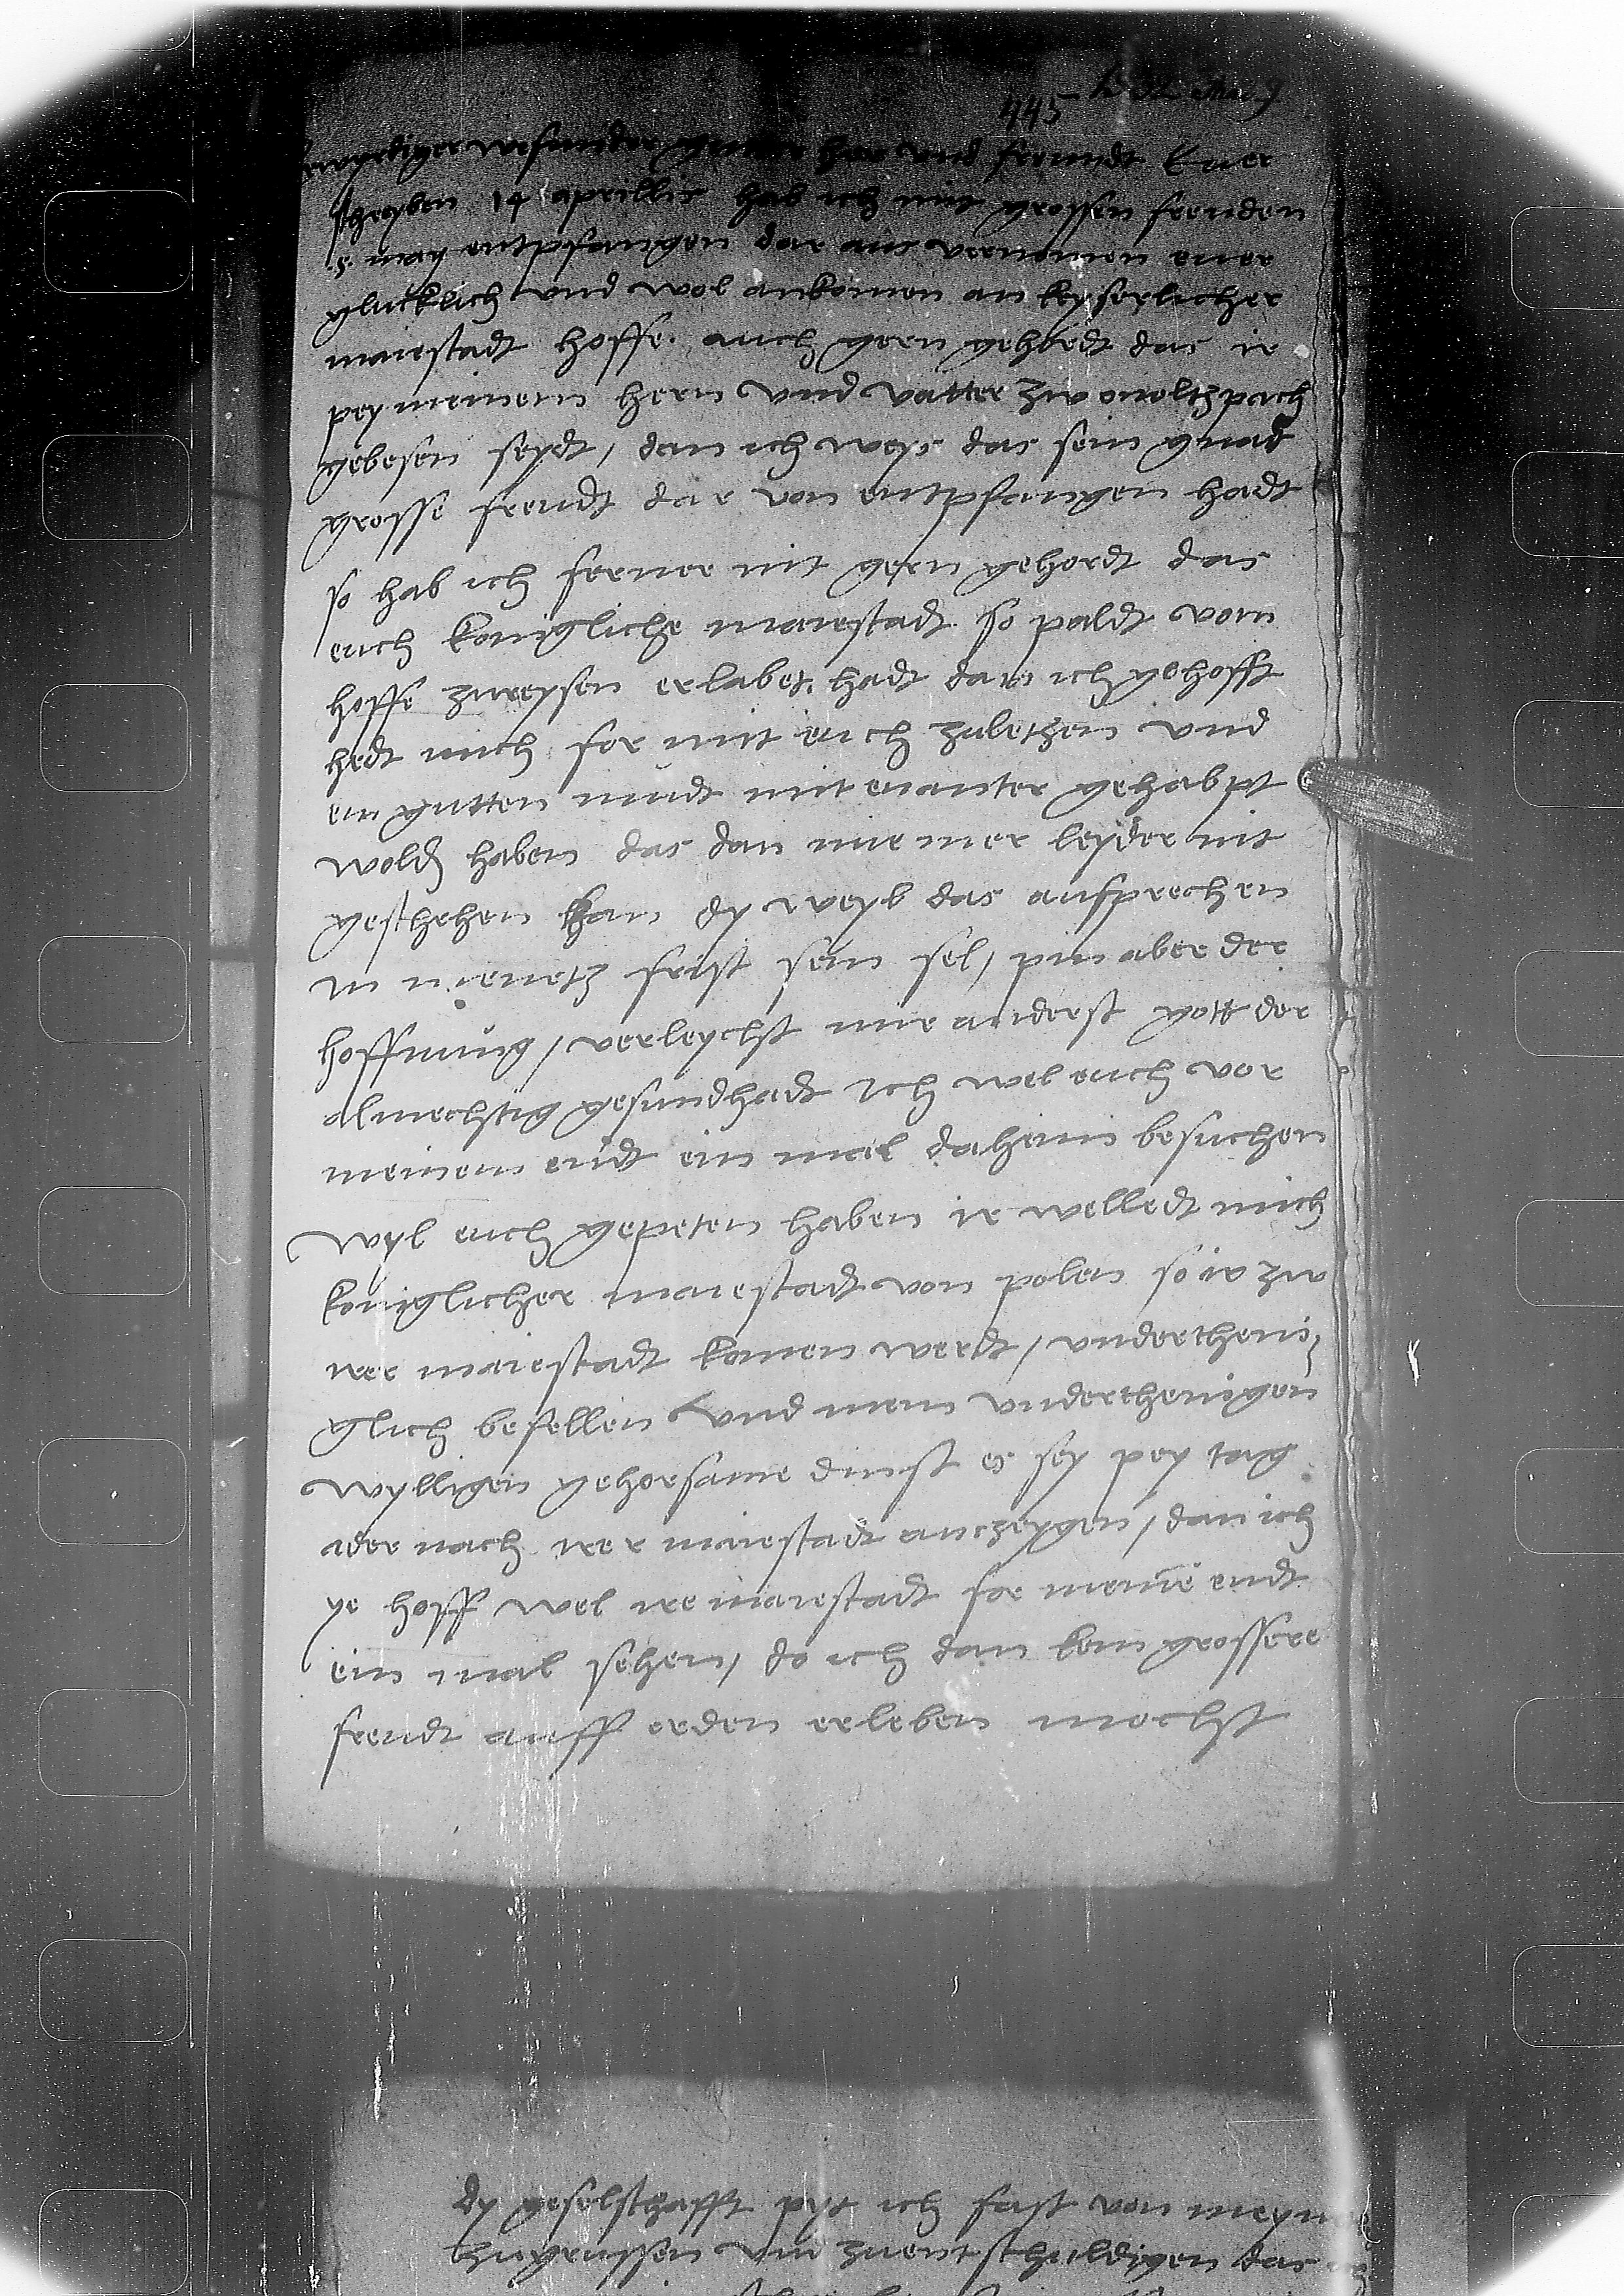 445 1532 Mai 9
Erwyrdiger besunder gutter her und freundt Euer
schreyben 14 aprillis hab ich mit grossen freuden
.8. may entpfangen dar aus vernomen euer
glucklich und wol ankomen an keyserlicher
maiestadt hoffe. auch gern gehördt das ir
pey meinem hern und vatter zw onoltzpach
gebesen seydt, dan ich weys das sein gnad
grosse freudt dar von entpfangen hadt
so hab ich ferner nit gern gehordt das
euch konigliche maiestadt so paldt vom
hoffe zureysen erlabet hadt dan ich gehofft
hedt mich for mit euch zuletzen und
ein gutten mudt mit einanter gehabpt
wold haben das dan nue mer leyder nit
geschehen kan dy weyl das aufprechen
in kurtz frist sein sol, pin aber der
hoffnung, verleychst mir anderst gott der
almechtig gesundhadt ich wel euch vor
meinem endt ein mal daheim besuchen
wyl euch gepeten haben ir welledt mich
koniglicher maiestadt von polen so ir zw
irer maiestadt komen werdt, undertheni,
glich befellen und mein underthenigen
wylligen gehorsame dinst es sey pey tag
ader nach irer maiestadt anczeygen, dan ich
ye hoff wel ire maiestadt for meinē endt
ein mal sehen, do ich dan kein grossere
freudt auff erden erleben mochst
dy geselschafft pyt ich fast von mey
zugrussen um zuentschuldigen das